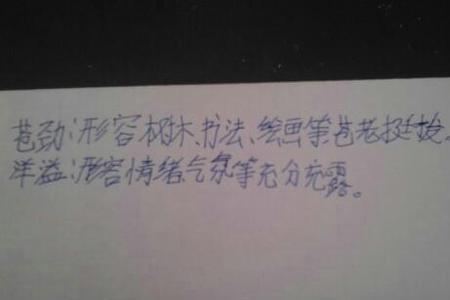 苍劲:形容树木、书法、绘画等苍老挺拔。
洋溢:形容情绪、气氛等充分充露。